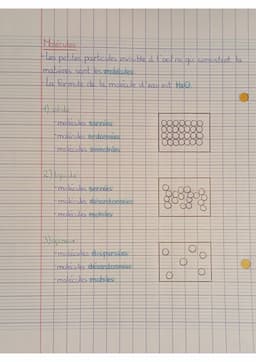 Molécules
- Les petites particules invisible à l'oeil nu qui constituent la
matières sont les molécules.
- La formule de la molécule d'eau est H₂O.
1) solide
- molécules serrées
- molécules ordonnées
- molécules immobiles
2) liquide
- molécules serrées
- molécules désordonnées
- molécules mobiles
3) gazeux
- molécules dispersées
- molécules désordonnées
- molécules mobiles